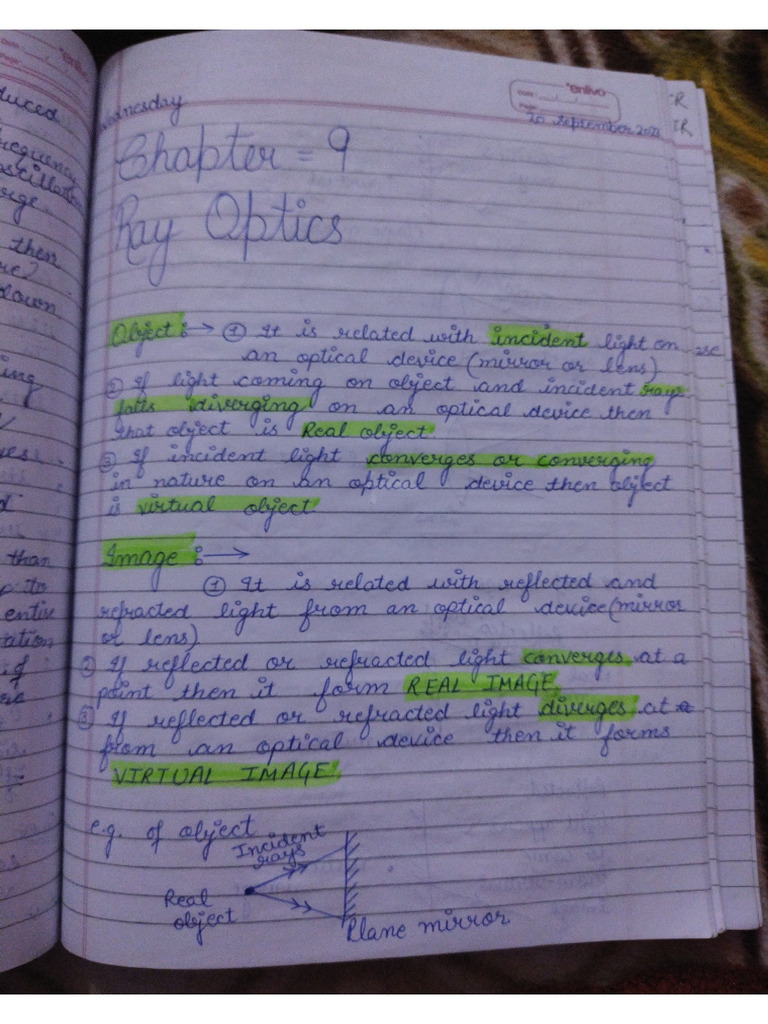 duced
frequency
then
down
ing
than
entire
of
enlivo
Date
Page
Wednesday
20 September 202
Chapter = 9
Ray Optics
Object :→ ① It is related with incident light on
an optical device (mirror or lens)
② If light coming on object and incident rays
falls diverging on an optical device then
that object is Real object.
③ If incident light converges or converging
in nature on an optical device then object
is virtual object
Image :→
① It is related with reflected and
refracted light from an optical device (mirror
or lens)
② If reflected or refracted light converges at a
point then it form REAL IMAGE.
③ If reflected or refracted light diverges at
from an optical device then it forms
VIRTUAL IMAGE.
e.g. of object
Incident
rays
Real
object
Plane mirror